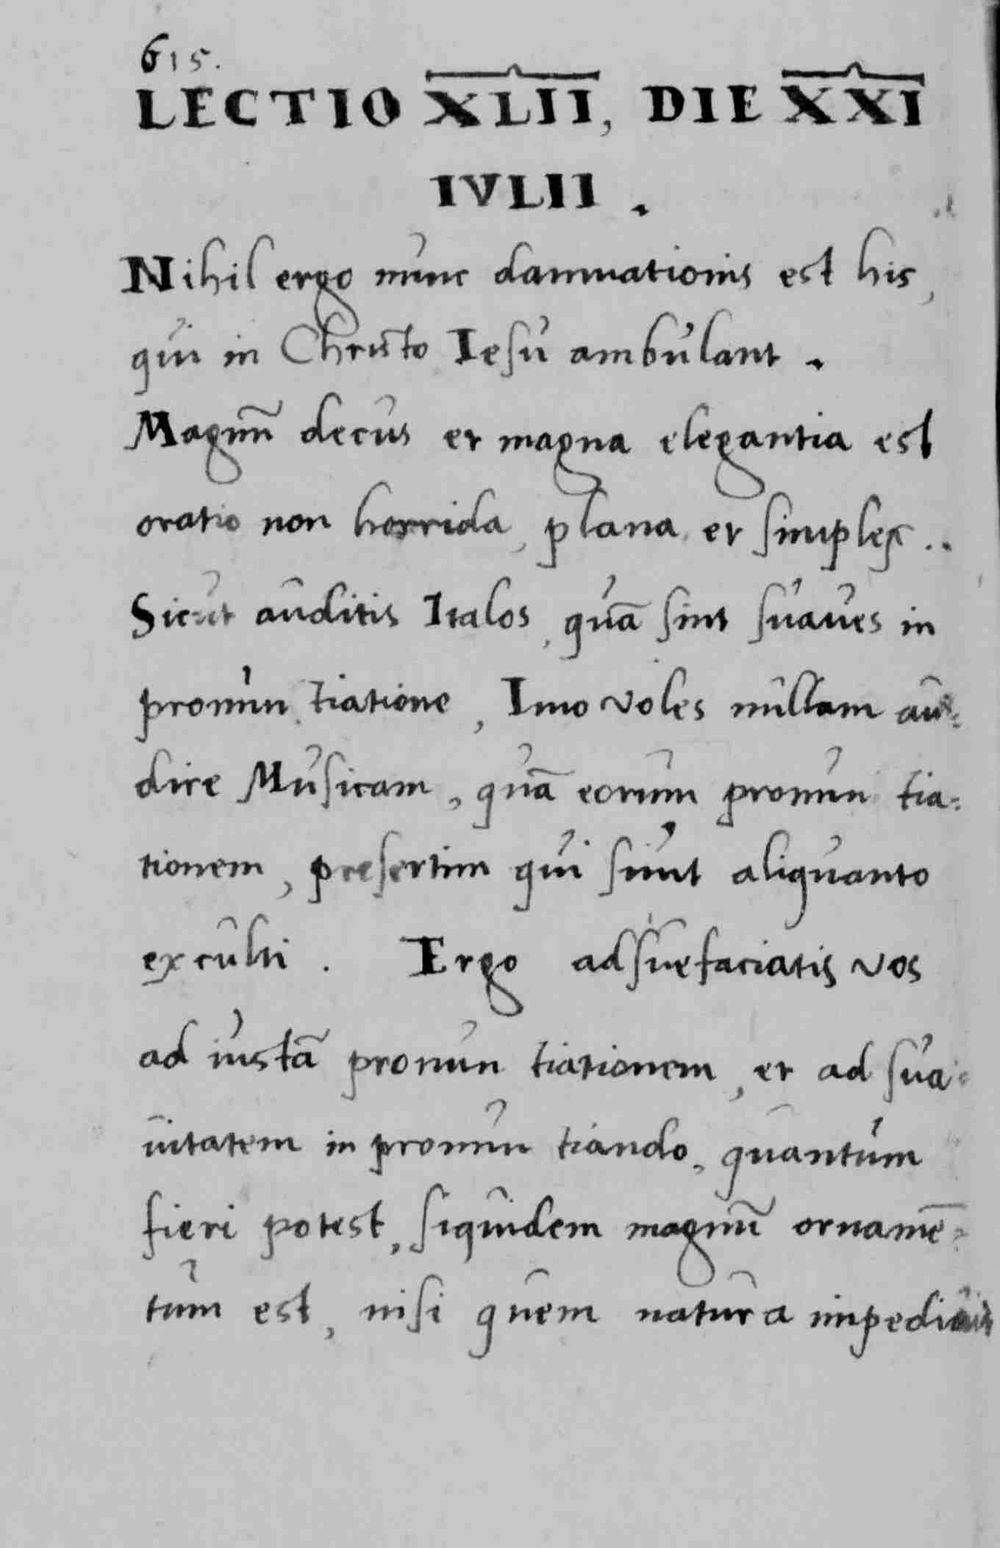 615.
LECTIO XLII, DIE XXI
IVLII .
Nihil ergo nunc damnationis est his,
qui in Christo Iesu ambulant .
Magnũ decus et magna elegantia est
oratio non horrida, plana, et simplex ..
Sicut auditis Italos, quã sint suaues in
pronuntiatione, Imo voles nullam au=
dire Musicam, quã eorum pronuntia=
tionem, presertim qui sunt aliquanto
exculti . Ergo adsuefaciatis vos
ad iustã pronuntiationem, et ad sua=
uitatem in pronuntiando, quantum
fieri potest, siquidem magnũ ornamẽ=
tum est, nisi quem natura